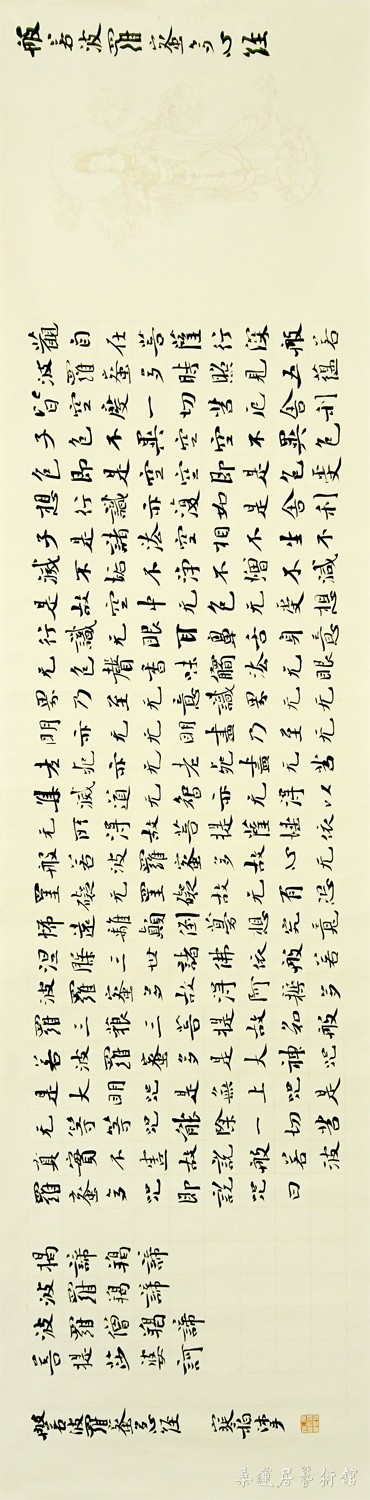 般若波羅蜜多心経
觀自在菩薩行深般若
波羅蜜多時照見五蘊
皆空度一切苦厄舍利
子色不異空空不異色
色即是空空即是色受
想行識亦復如是舍利
子是諸法空相不生不
滅不垢不淨不增不減
是故空中无色无受想
行識无眼耳鼻舌身意
无色聲香味觸法无眼
界乃至无意識界无无
明亦无无明盡乃至无
老死亦无老死盡无苦
集滅道无智亦无得以
无所得故菩提薩埵依
般若波羅蜜多故心无
罣礙无罣礙故无有恐
怖遠離顛倒夢想究竟
涅槃三世諸佛依般若
波羅蜜多故得阿耨多
羅三藐三菩提故知般
若波羅蜜多是大神咒
是大明咒是無上咒是
无等等咒能除一切苦
真實不虛故說般若波
羅蜜多咒即說咒曰
揭諦羯諦
波羅羯諦
波羅僧羯諦
菩提莎婆訶
般若波羅蜜多心経
桑蓮居藝術館